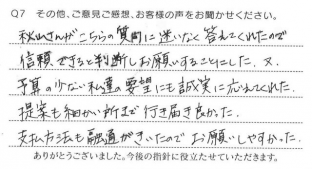 Q7 その他、ご意見ご感想、お客様の声をお聞かせください。
秋山さんがこちらの質問に迷いなく答えてくれたので
信頼できると判断しお願いすることにした。又、
予算の少ない私達の要望にも誠実に応えてくれた。
提案も細かい所まで行き届き良かった。
支払方法も融通がきいたのでお願いしやすかった。
ありがとうございました。今後の指針に役立たせていただきます。